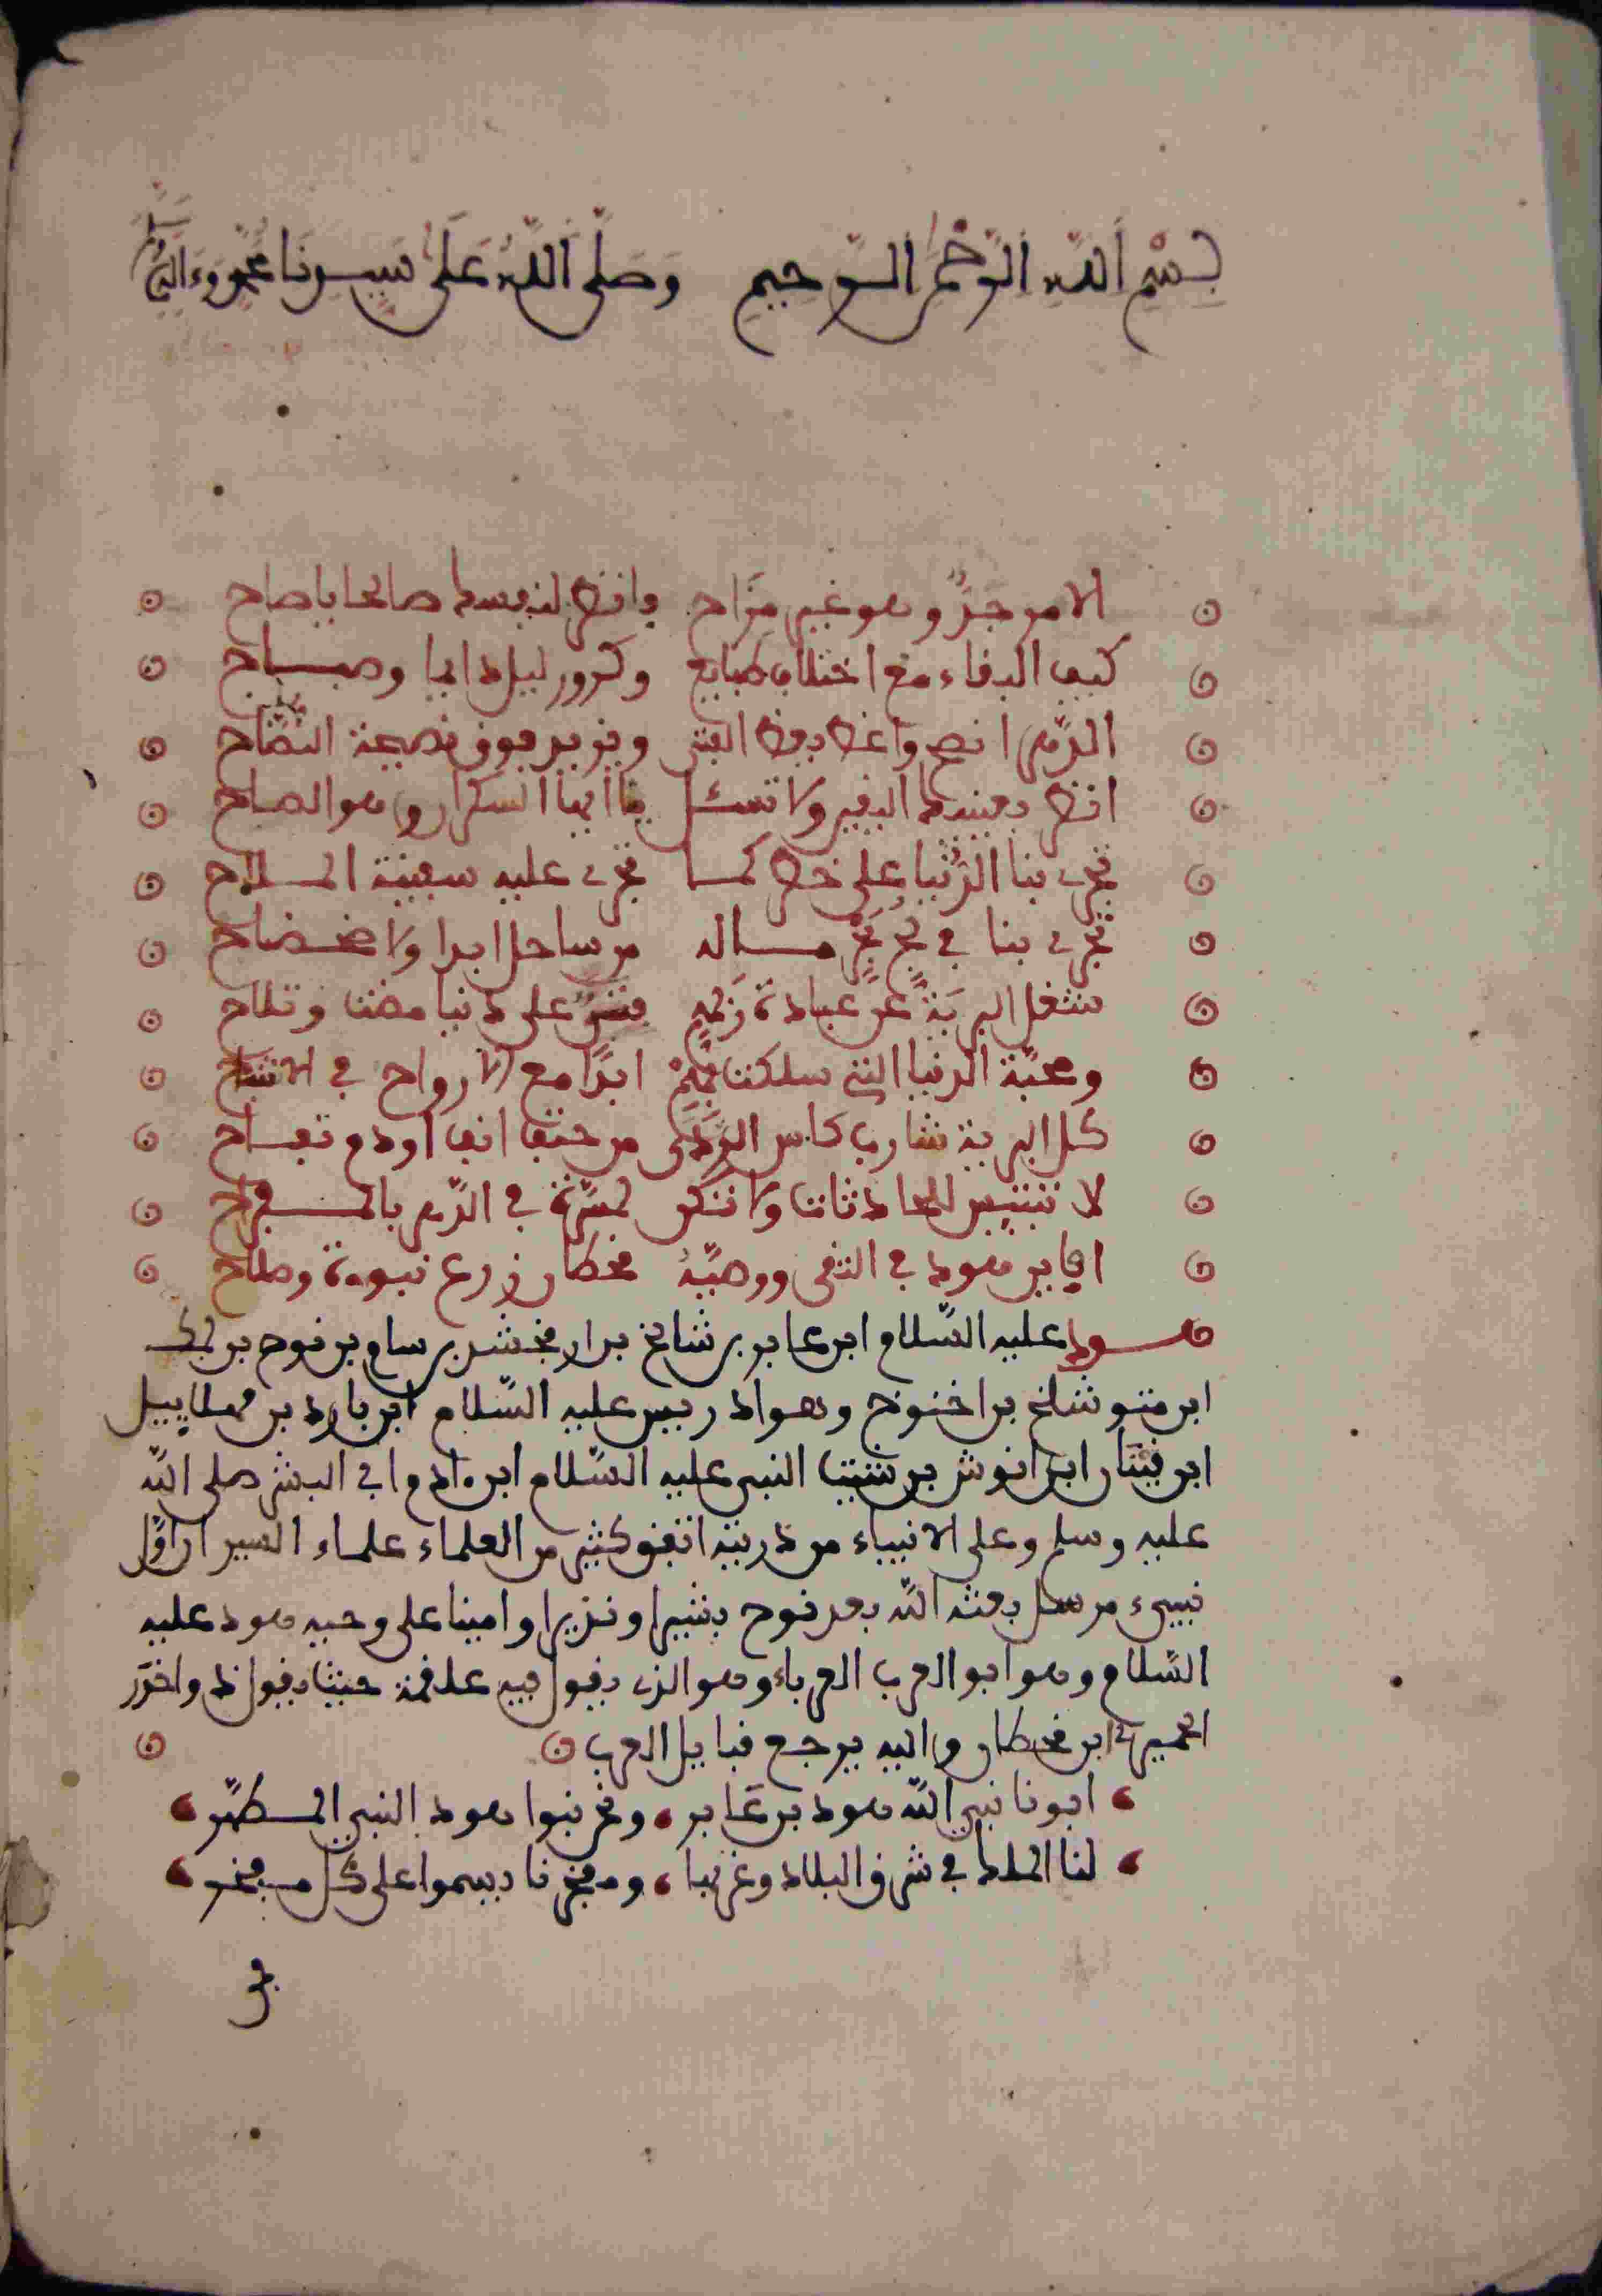 بسم الله الرحمن الرحيم وصلى الله على سيدنا محمد وءاله
الامر جد وهو غير مزاح فانظر لنفسك صالحا ياصاح
كيف البقاء مع اختلاف طبايع وكرور ليل دايما وصباح
الدهر انصح واعظ يعظ الفتى ويزيد فوق نصيحة النصاح
انظر بعينيك اليقين ولا تسئل يا ايها السكران وهو الصاح
تجري بنا الدنيا على خطر كما تجري عليه سفينة الملاح
تجري بنا في لج بحر ماله من ساحل ابدا ولا ضحضاح
شغل البرية عن عبادة ربهم فتن على دنيا مضت وتلاح
ومحبة الدنيا التي سلكت بهم ابدا مع الارواح في الاشباح
كل البرية شارب كاس الردى من حتف انف او دم نفاح
لا تبتيس للحادثات ولا تكن لمسرة في الدهر بالمفراح
اين هود في التقى ووصيه قحطان زرع نبوءة وصلاح
هود عليه السلام ابن عابر بن شالخ بن ارفخشد بن سام بن نوح بن لمك
ابن متوشلخ بن اخنوخ وهو ادريس عليه السلام ابن يارد بن مهلاييل
ابن قينان ابن انوش بن شيث النبي عليه السلام ابن ءادم ابي البشر صلى الله
عليه وسلم وعلى الانبياء من ذريته اتفق كثير من العلماء علماء السير ان اول
نبيء مرسل بعثه الله بعد نوح بشيرا ونذيرا وامينا على وحيه هود عليه
السلام وهو ابو العرب العرباء وهو الذي يقول فيه علقمة حيث يقول ذو اخدر
الحميري ابن قحطان واليه يرجع قبايل العرب
ابونا نبي الله هود بن عابر ونحن بنوا هود النبي المطهر
لنا الملك في شرق البلاد وغربها ومفخرنا يسموا على كل مفخر